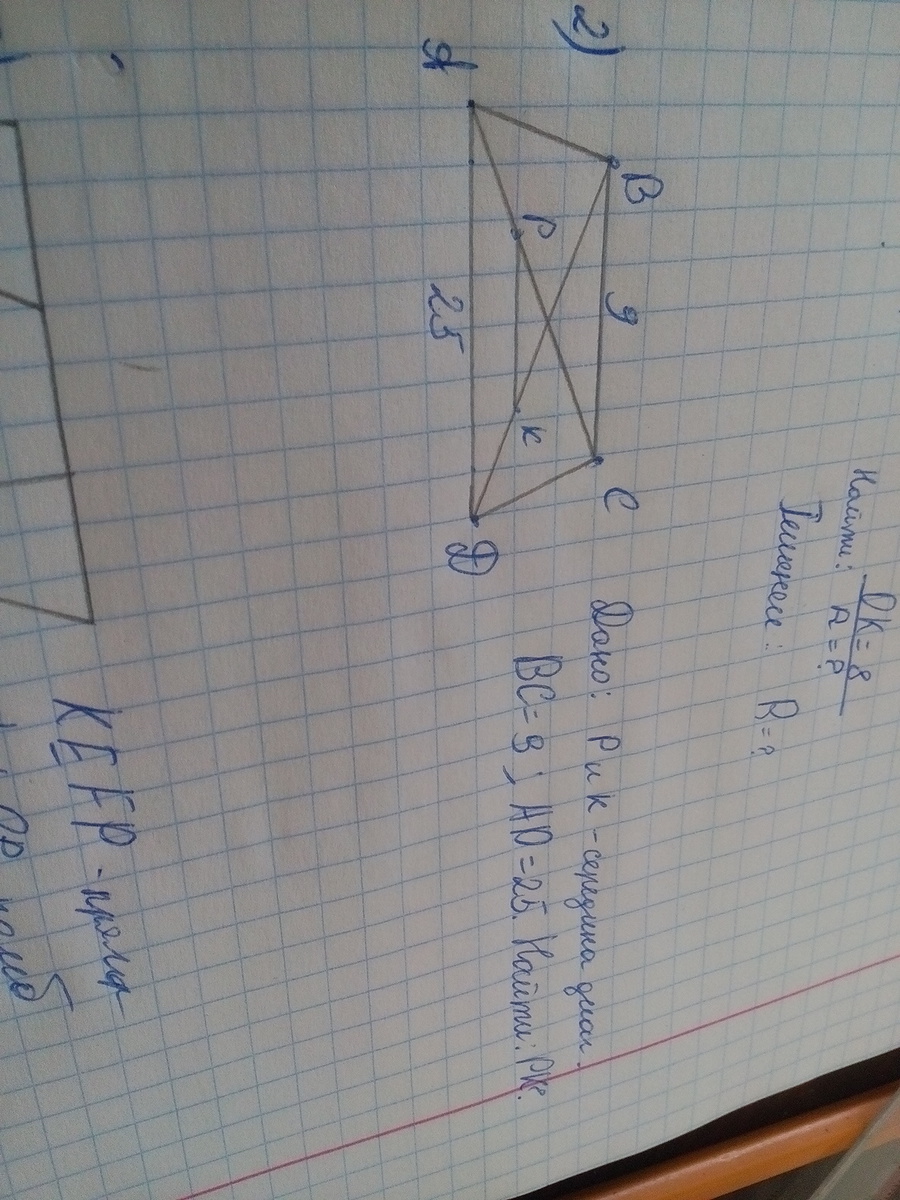 Найти: DK = 8
R = ?
R = ?
2)
B
9
C
P
K
A
25
D
Дано: P и K - середина диаг.
BC = 9 ; AD = 25. Найти: PK.
KEFP - прямоуг